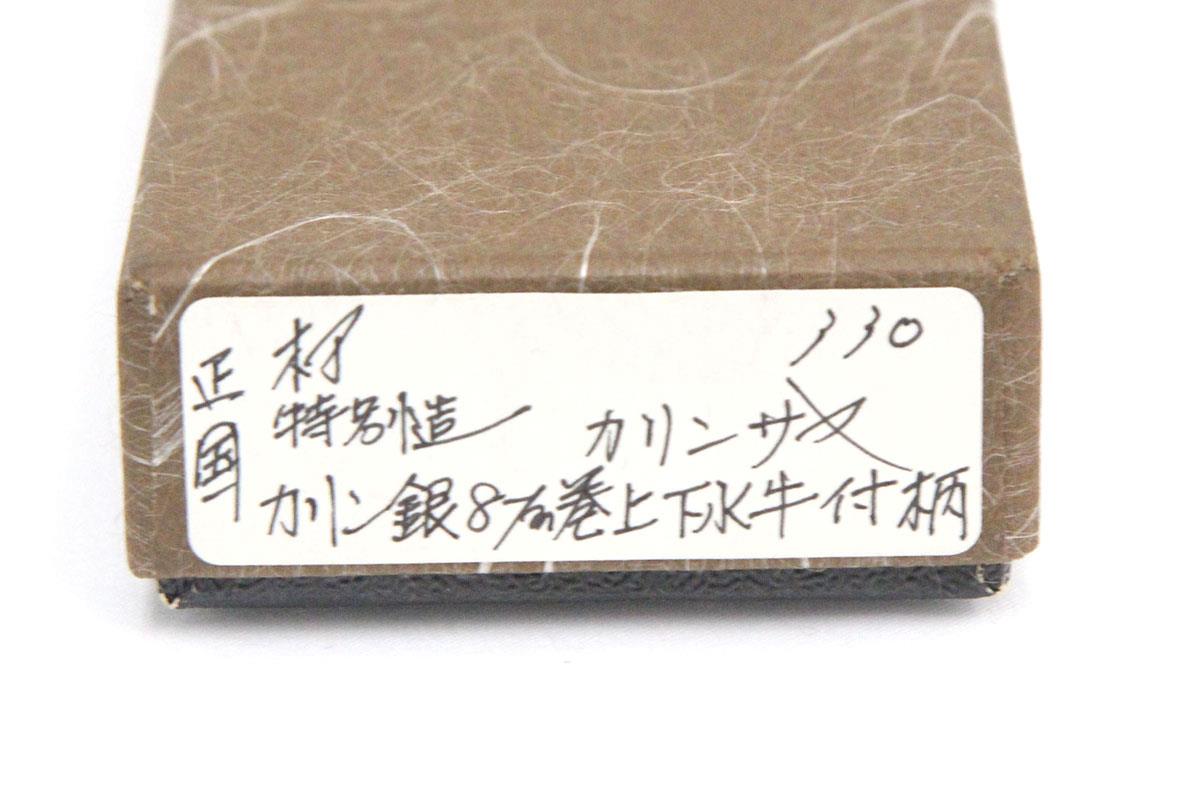 正国
材 330
特別造 カリンサヤ
カリン銀8方巻上下水牛付柄